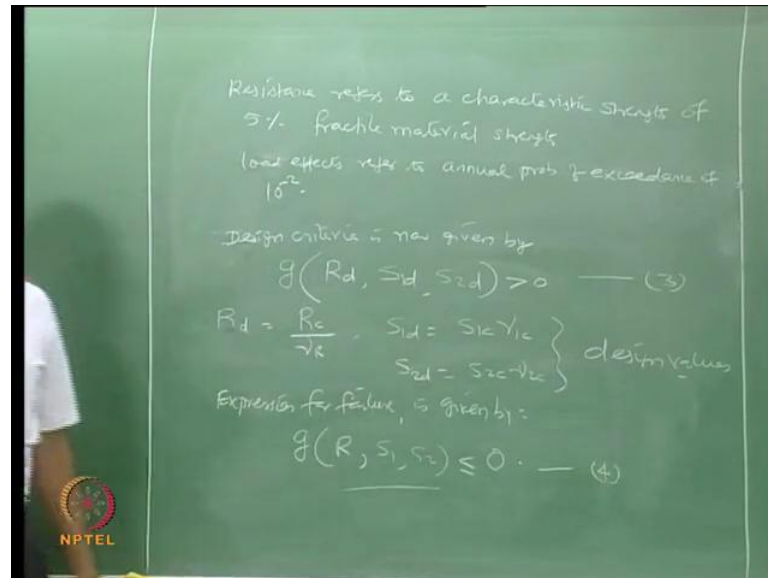 Resistance refers to a characteristic strength of
5% fractile material strength
load effects refer to annual prob of exceedance of
10⁻².
Design criteria is now given by
g(Rd, S1d, S2d) > 0 — (3)
Rd = Rc/γR . S1d = S1c γ1c } design values
S2d = S2c γ2c
Expression for failure, is given by:
g(R, S1, S2) ≤ 0 . — (4)
NPTEL